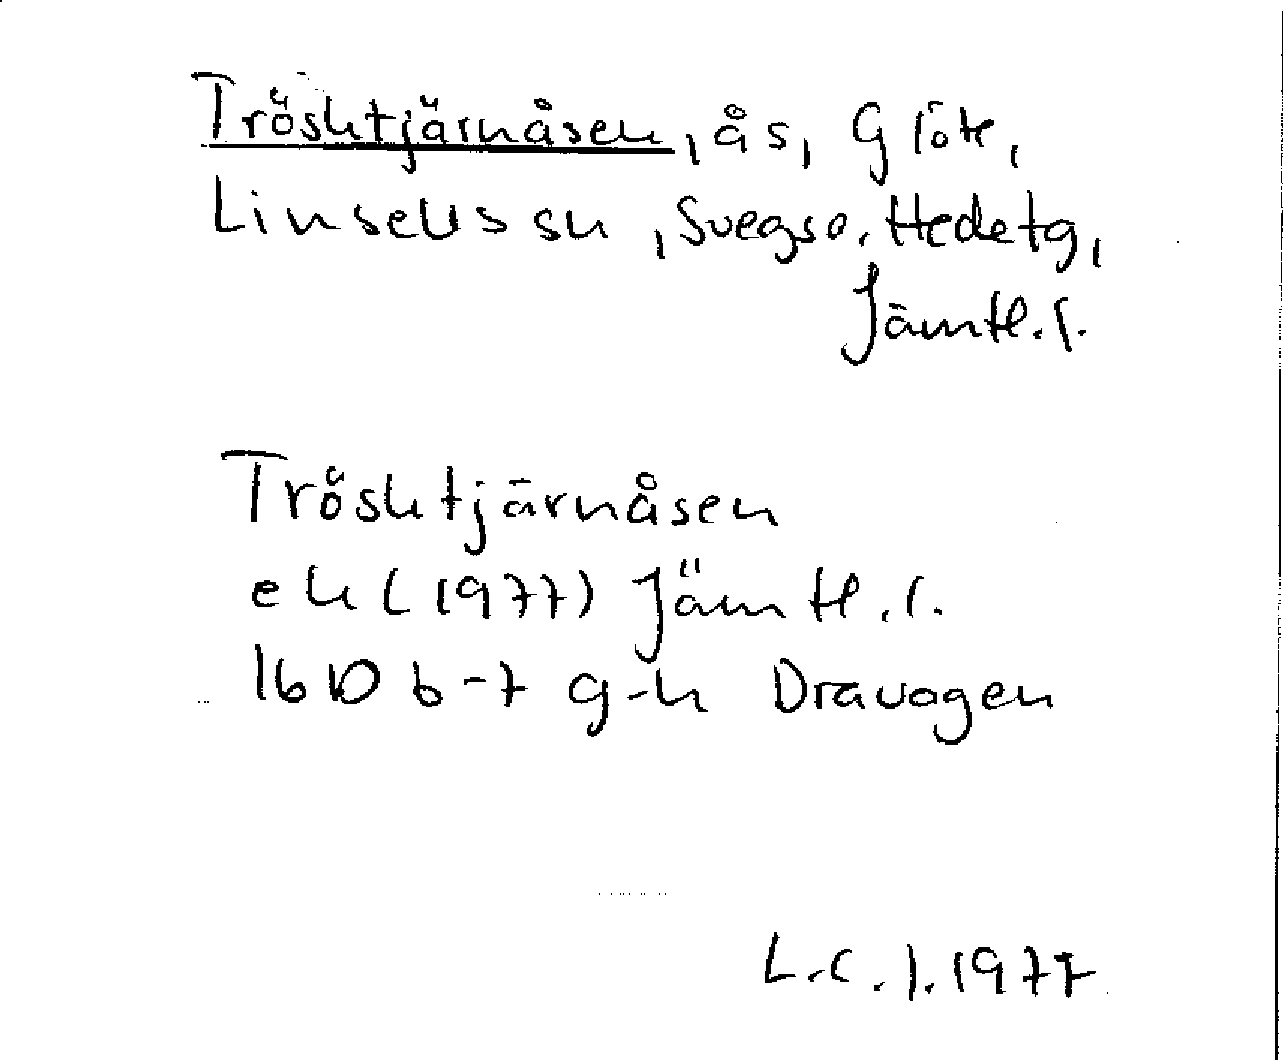 Trösktjärnåsen, ås, Glöte,
Linsells sn, Svegs o. Hede tg,
Jämtl. l.
Trösktjärnåsen
ek (1977) Jämtl. l.
16D 6-7 g-h Dravagen
L.C.J. 1977